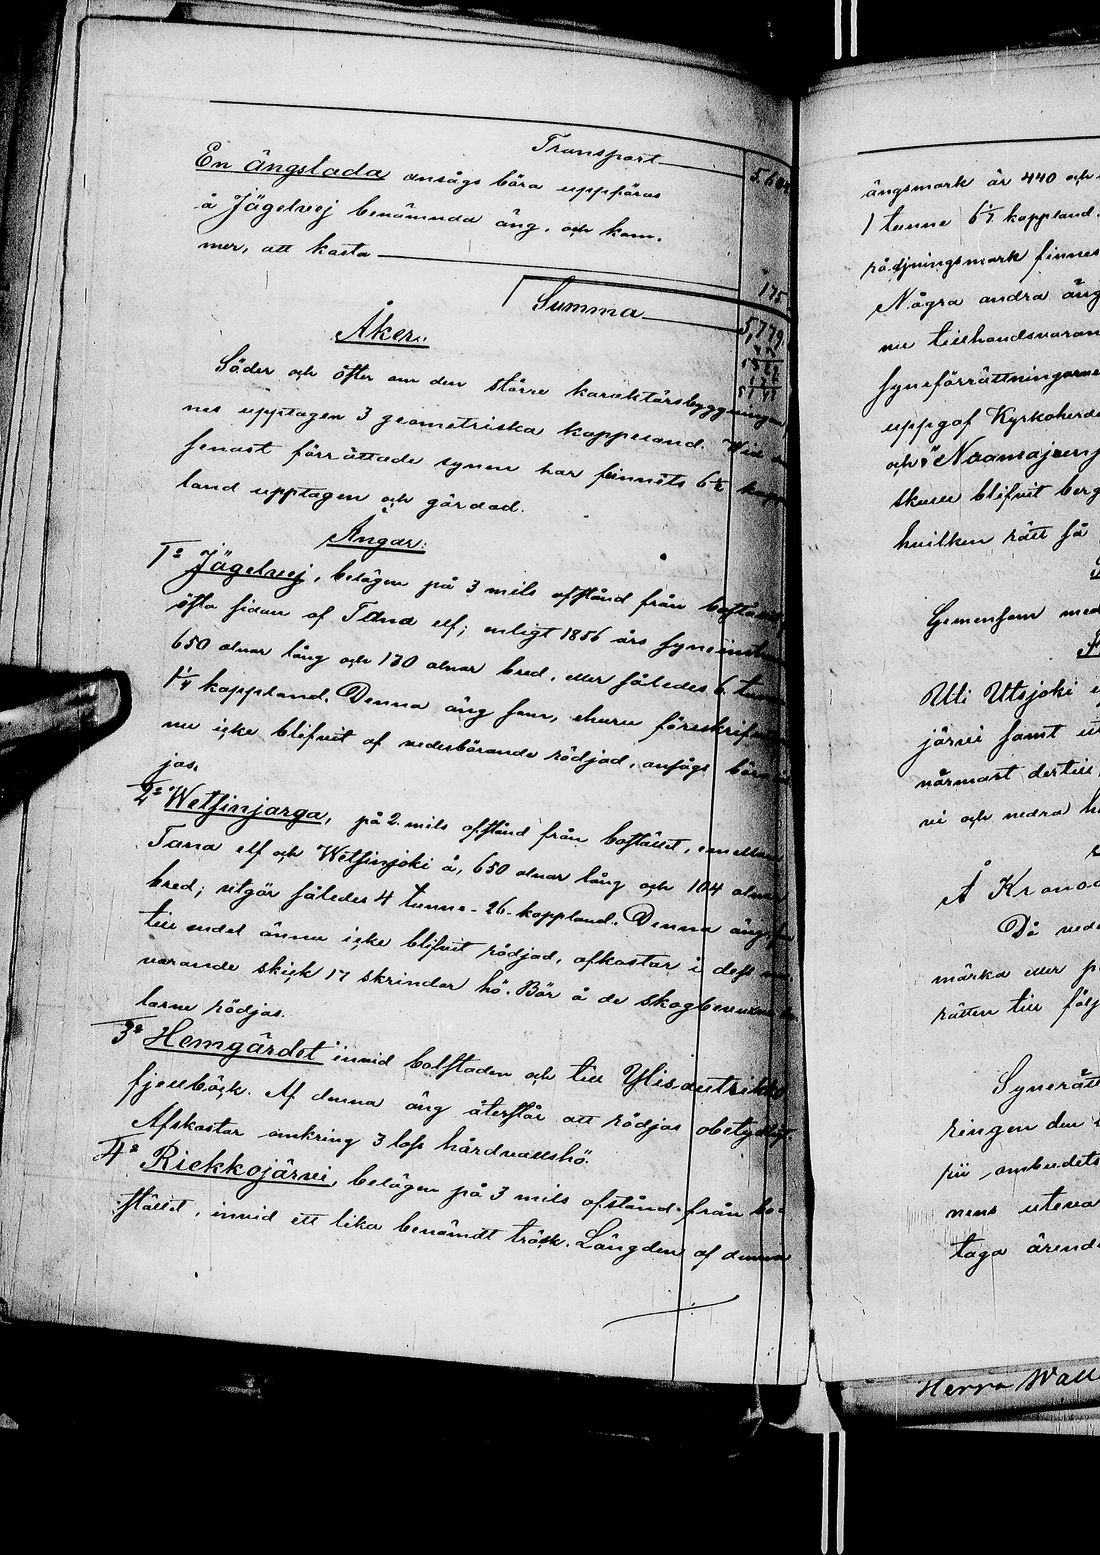 Transport 5,604
En ängslada ansågs böra uppföras
å Jägelveej benämnda äng, och kom-
mer, att kosta 175.
Summa 5,779.
Åker:
Söder och öster om den större karaktärsbyggningen
nes upptagen 3 geometriska kappeland. Wid
senast förrättade synen har funnits 6½ kapp
land upptagen och gärdad.
Ängar:
1o Jägelveej, belägen på 3 mils afstånd från bostället,
östra sidan af Tana elf; enligt 1856 års syneinstru
650 alnar lång och 130 alnar bred, eller således 6 tunne
1¼ kappland. Denna äng som, ehuru föreskrifvet
nu icke blifvit af vederbörande rödjad, ansågs böra
jas.
2o Wetsinjarga, på 2 mils afstånd från bostället, emellan
Tana elf och Wetsinjoki å, 650 alnar lång och 104 alnar
bred; utgör således 4 tunne- 26 kappland. Denna äng, som
till endel ännu icke blifvit rödjad, afkastar i dess nu
varande skick 17 skrindor hö. Bör å de skogbevuxna
larne rödjas.
3o Hemgärdet invid bolstaden och till
fjellbäck. Af denna äng återstår att rödjas obetydligt.
Afkastar omkring 3 lass hårdvallshö.
4o Riekkojärvi, belägen på 3 mils afstånd från bo-
stället, invid ett lika benämdt träsk. Längden af denna
ängsmark är 440 och
1 tunne 6½ kappland.
rödjningsmark finnes
Några andra äng
nu tillhandsvaran
syneförrättningarne
uppgaf Kyrkoherde
och
skulle blifvit berg
hvilken rätt så
Gemensam med
Uti Utsjoki
järvi samt
närmast dertill,
vi och nedra
Å Krono
Då ved
märka eller på
rätten till följ
Synerätt
ringen den
pii ombudets
nens uteva
taga ärend
Herra Wall